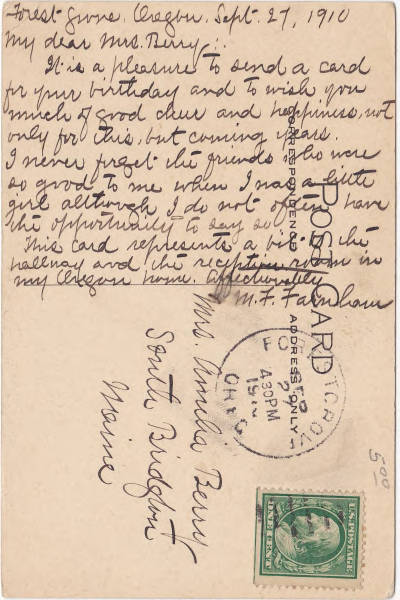 Forest Grove, Oregon. Sept. 27, 1910
My dear Mrs. Berry,
It is a pleasure to send a card
for your birthday and to wish you
much of good cheer and happiness, not
only for this, but coming years.
I never forget the friends who were
so good to me when I was a little
girl although I do not often have
the opportunity to say so.
This card represents a bit of the
hallway and the reception room in
my Oregon home. Affectionately
M. F. Farnham
CORRESPONDENCE
POST CARD
ADDRESS ONLY
Mrs. Amelia Berry
South Bridgton
Maine
SEP
4 30 PM
1910
OREG.
5 00
U.S. POSTAGE
ONE CENT